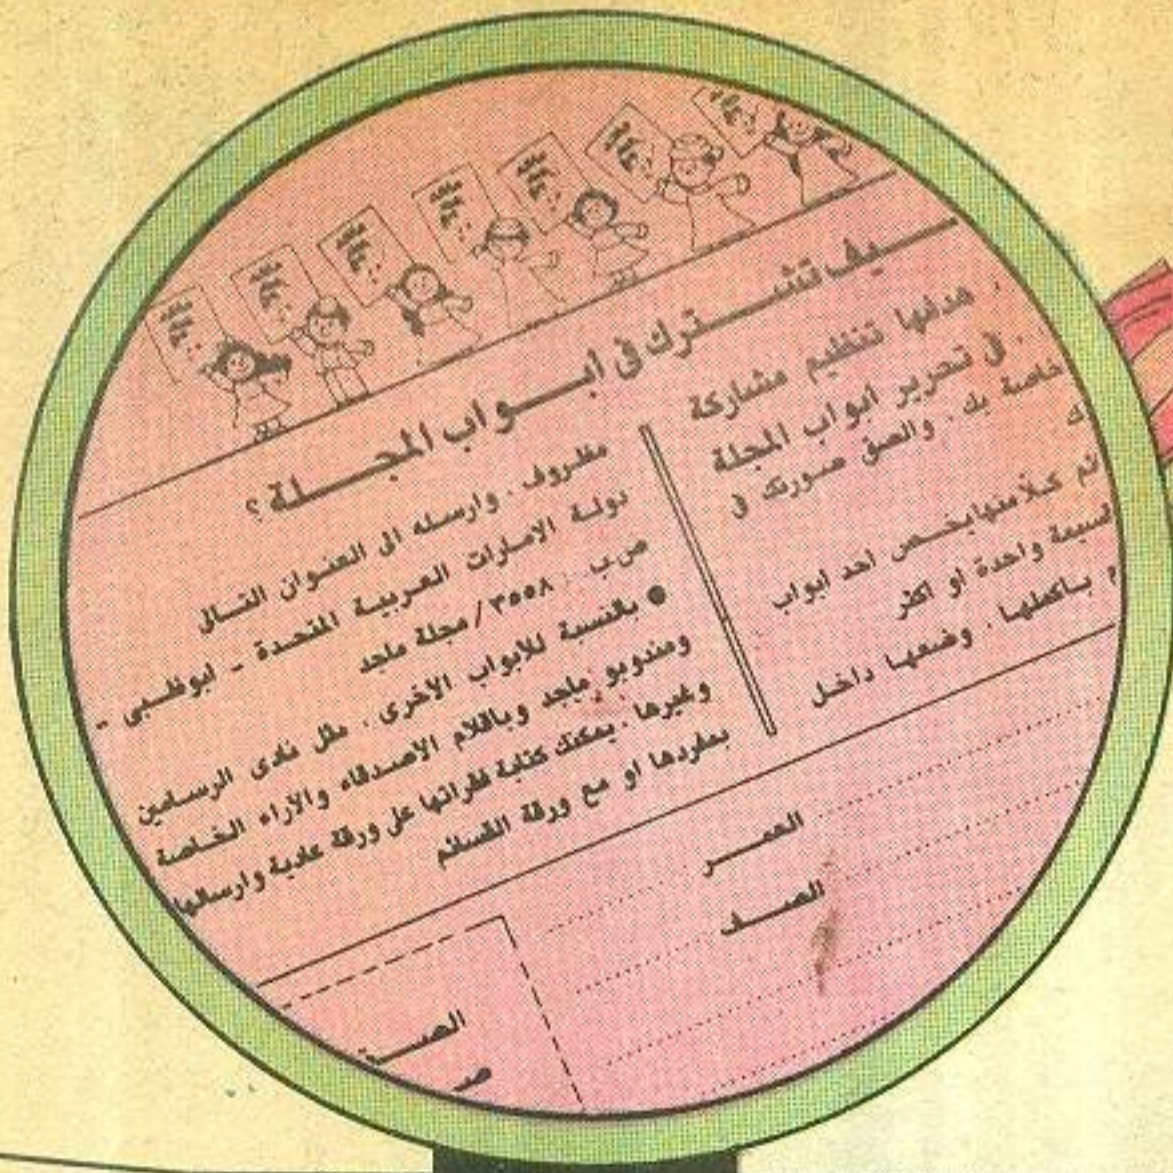 ـيف تشـترك في أبـواب المجـلة ؟
هدفها تنظيم مشاركة
في تحرير ابواب المجلة
خاصة بك . والصق صورتك في
ـك
ـائم كلاً منها يخص احد ابواب
ـسيمة واحدة او اكثر
م بـاكملها . وضعها داخل
مظروف . وارسله الى العنوان التالى
دولة الامارات العربية المتحدة - ابوظبى -
ص.ب : ٣٥٥٨ / مجلة ماجد
● بالنسبة للابواب الاخرى . مثل نادى الرسامين
ومندوبو ماجد وباقلام الاصدقاء والاراء الخاصة
وغيرها . يمكنك كتابة فقراتها على ورقة عادية وارسالها
بمفردها او مع ورقة القسائم
العمـر
الصـف
الصـ
صـ